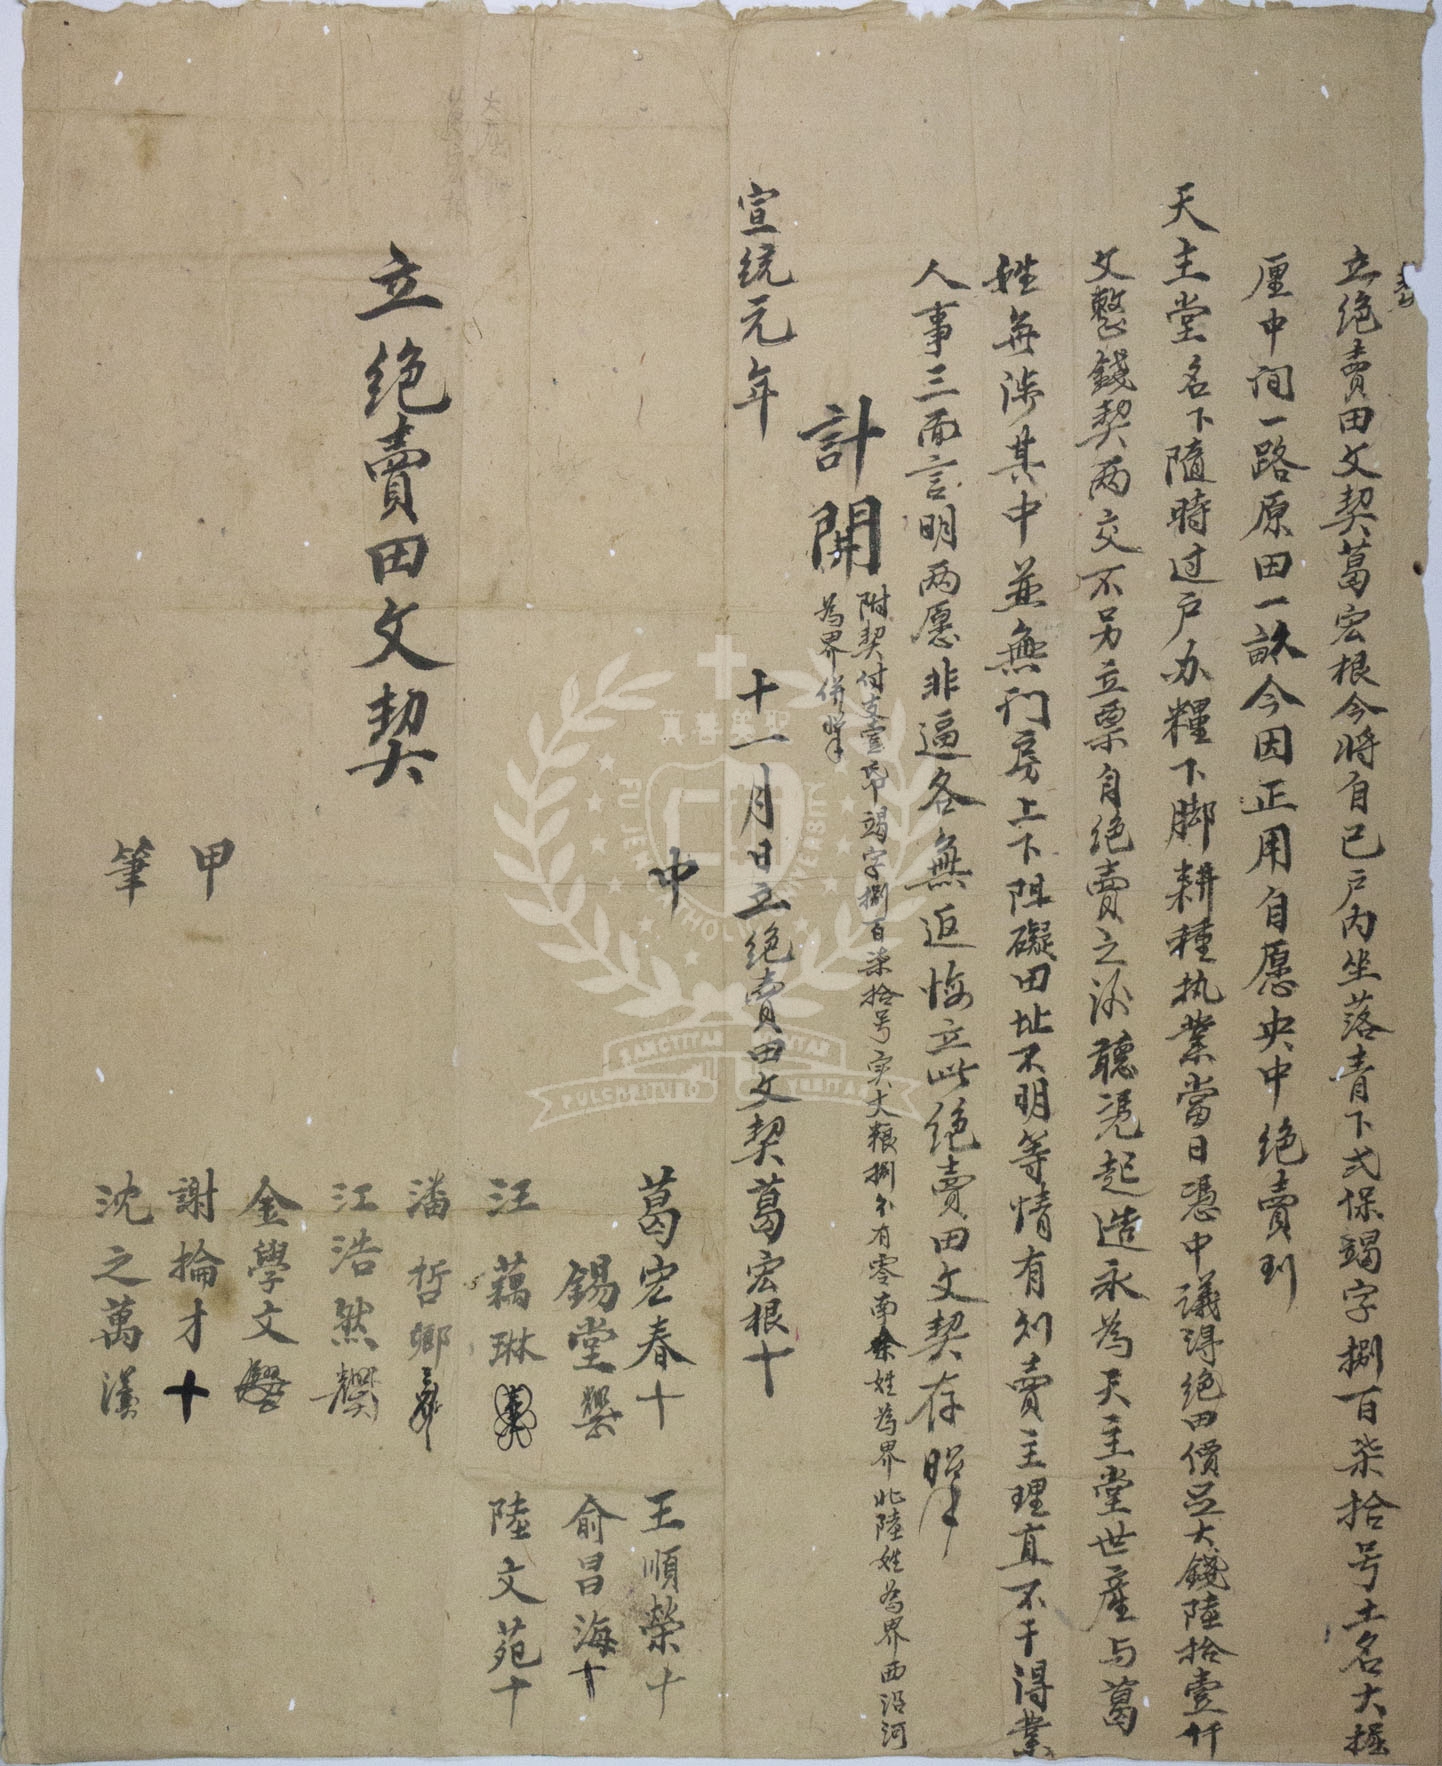 立絶賣田文契葛宏根今將自己戶內坐落青下弍保竭字捌百柒拾号土名大堀
厘中间一路原田一畝今因正用自愿央中绝賣到
天主堂名下隨時过户办糧下脚耕種执業當日憑中議得绝田價足大錢陸拾壹仟
文整錢契两交不另立票自绝賣之後聽凴起造永為天主堂世產与葛
姓毎涉其中並無门房上下阻礙田址不明等情有則賣主理直不干得業
人事三面言明两愿非逼各無返悔立此绝賣田文契存照
計開
附契付支壹帋竭字捌百柒拾号实大粮捌分有零南余姓為界北陸姓為界西沿河
為界併照
宣统元年 十一月日立绝賣田文契葛宏根十
中
葛宏春十 王順榮十
錫堂 俞昌海十
汪藕琳 陸文苑十
潘哲卿
江浩然
金學文
甲 謝掄才十
筆 沈之萬
立绝賣田文契
PULCHRITUDO
SANCTITAS
VERITAS